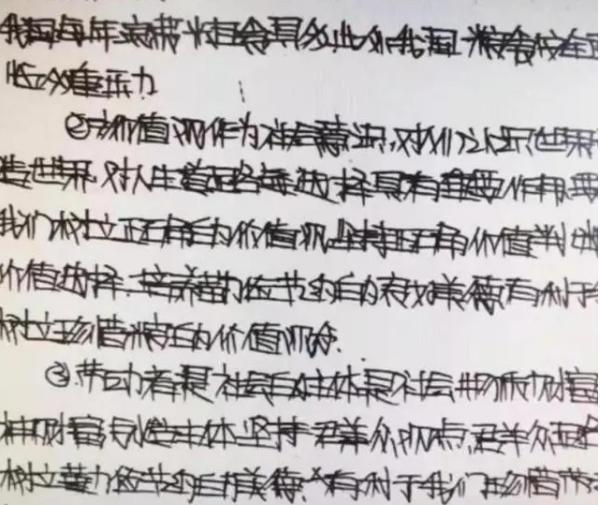 我国每年浪费粮食具多此外我国粮食安全面
临双重压力
②价值观作为社会意识,对人们认识世界
造世界,对人生道路的选择具有重要作用要
我们树立正确的价值观坚持正确价值判断
价值选择.培养勤俭节约的良好美德有利于
树立珍惜粮食的价值观念.
③劳动者是社会的主体是社会物质财富
神财富创造主体坚持群众观点,群众
树立勤力俭节约的美德.有利于我们珍惜劳